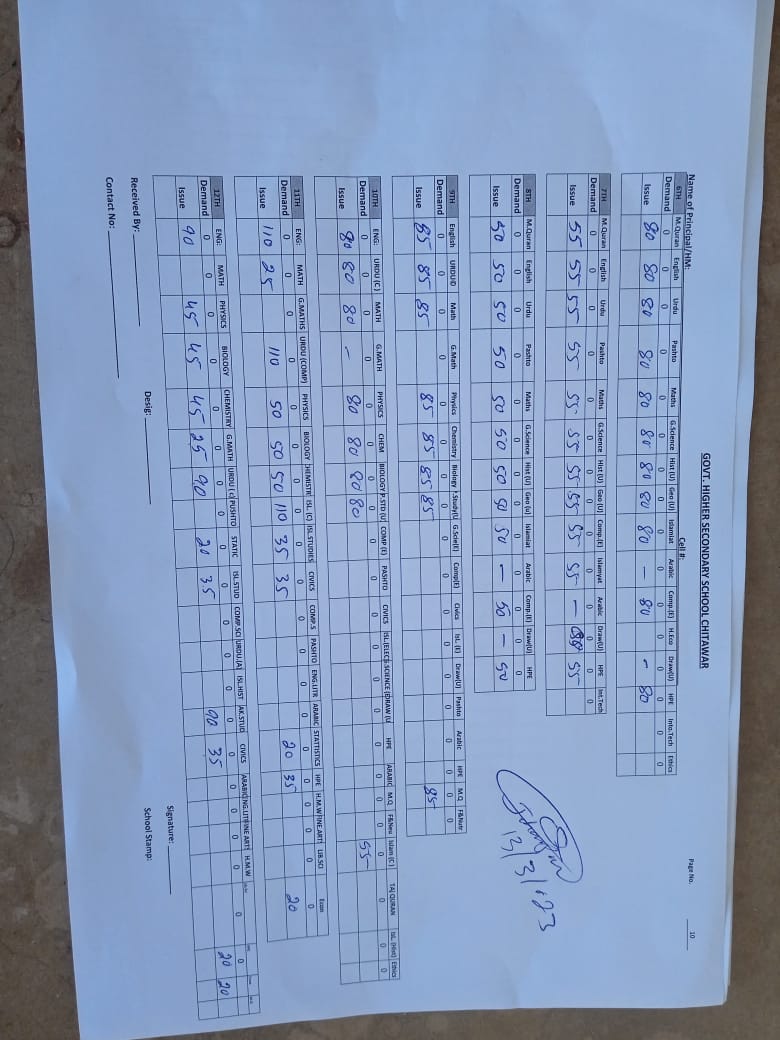 Page No. 10
GOVT. HIGHER SECONDARY SCHOOL CHITAWAR
Name of Principal/HM: Cell #:
6TH M.Quran English Urdu Pashto Maths G.Science Hist (U) Geo (U) Islamiat Arabic Comp.(E) H.Eco Draw(U) HPE Into.Tech Ethics
Demand 0 0 0 0 0 0 0 0 0 0 0 0 0 0 0 0
Issue 80 80 80 80 80 80 80 80 80 — 80 - 80
7TH M.Quran English Urdu Pashto Maths G.Science Hist (U) Geo (U) Comp.(E) Islamyat Arabic Draw(U) HPE Int.Tech
Demand 0 0 0 0 0 0 0 0 0 0 0 0 0 0
Issue 55 55 55 55 55 55 55 55 55 55 — 55
8TH M.Quran English Urdu Pashto Maths G.Science Hist (U) Geo (u) Islamiat Arabic Comp.(E) Draw(U) HPE
Demand 0 0 0 0 0 0 0 0 0 0 0 0 0
Issue 50 50 50 50 50 50 50 50 50 — 50 — 50
13/3/23
9TH English URDUD Math G.Math Physics Chemistry Biology P.Study(U) G.Scie(E) Comp(E) Civics Isl. (E) Draw(U) Pashto Arabic HPE M.Q F&Nutr
Demand 0 0 0 0 0 0 0 0 0 0 0 0 0 0 0 0 0
Issue 85 85 85 85 85 85 85 85
10TH ENG: URDU (C) MATH G.MATH PHYSICS CHEM BIOLOGY P.STD (U) COMP (E) PASHTO CIVICS ISL.(ELEC) G.SCIENCE (E) DRAW (U) HPE ARABIC M.Q F&Neu Islam (C) TAJ QURAN Isl. (Hist) Ethics
Demand 0 0 0 0 0 0 0 0 0 0 0 0 0 0 0 0 0 0 55 0 0 0
Issue 80 80 80 — 80 80 80 80
11TH ENG: MATH G.MATHS URDU (COMP) PHYSICS BIOLOGY CHEMISTR ISL. (C) ISL.STUDIES CIVICS COMP.S PASHTO ENG.LITR ARABIC STATTISTICS HPE H.M.W FINE.ART LIB.SCI Econ
Demand 0 0 0 0 0 0 0 0 0 0 0 0 0 0 0 0 0 0 0 0
Issue 110 25 110 50 50 50 110 35 35 20 35 20
12TH ENG: MATH PHYSICS BIOLOGY CHEMISTRY G.MATH URDU (c) PUSHTO STATIC ISL.STUD COMP.SCI URDU.(A) ISL.HIST AK.STUD CIVICS ARABIC ENG.LIT FINE ART H.M.W
Demand 0 0 0 0 0 0 0 0 0 0 0 0 0 0 0 0 0 0 0 0 0
Issue 90 45 45 45 25 90 20 35 90 35 20 20
Received By: Desig: Signature:
Contact No: School Stamp: